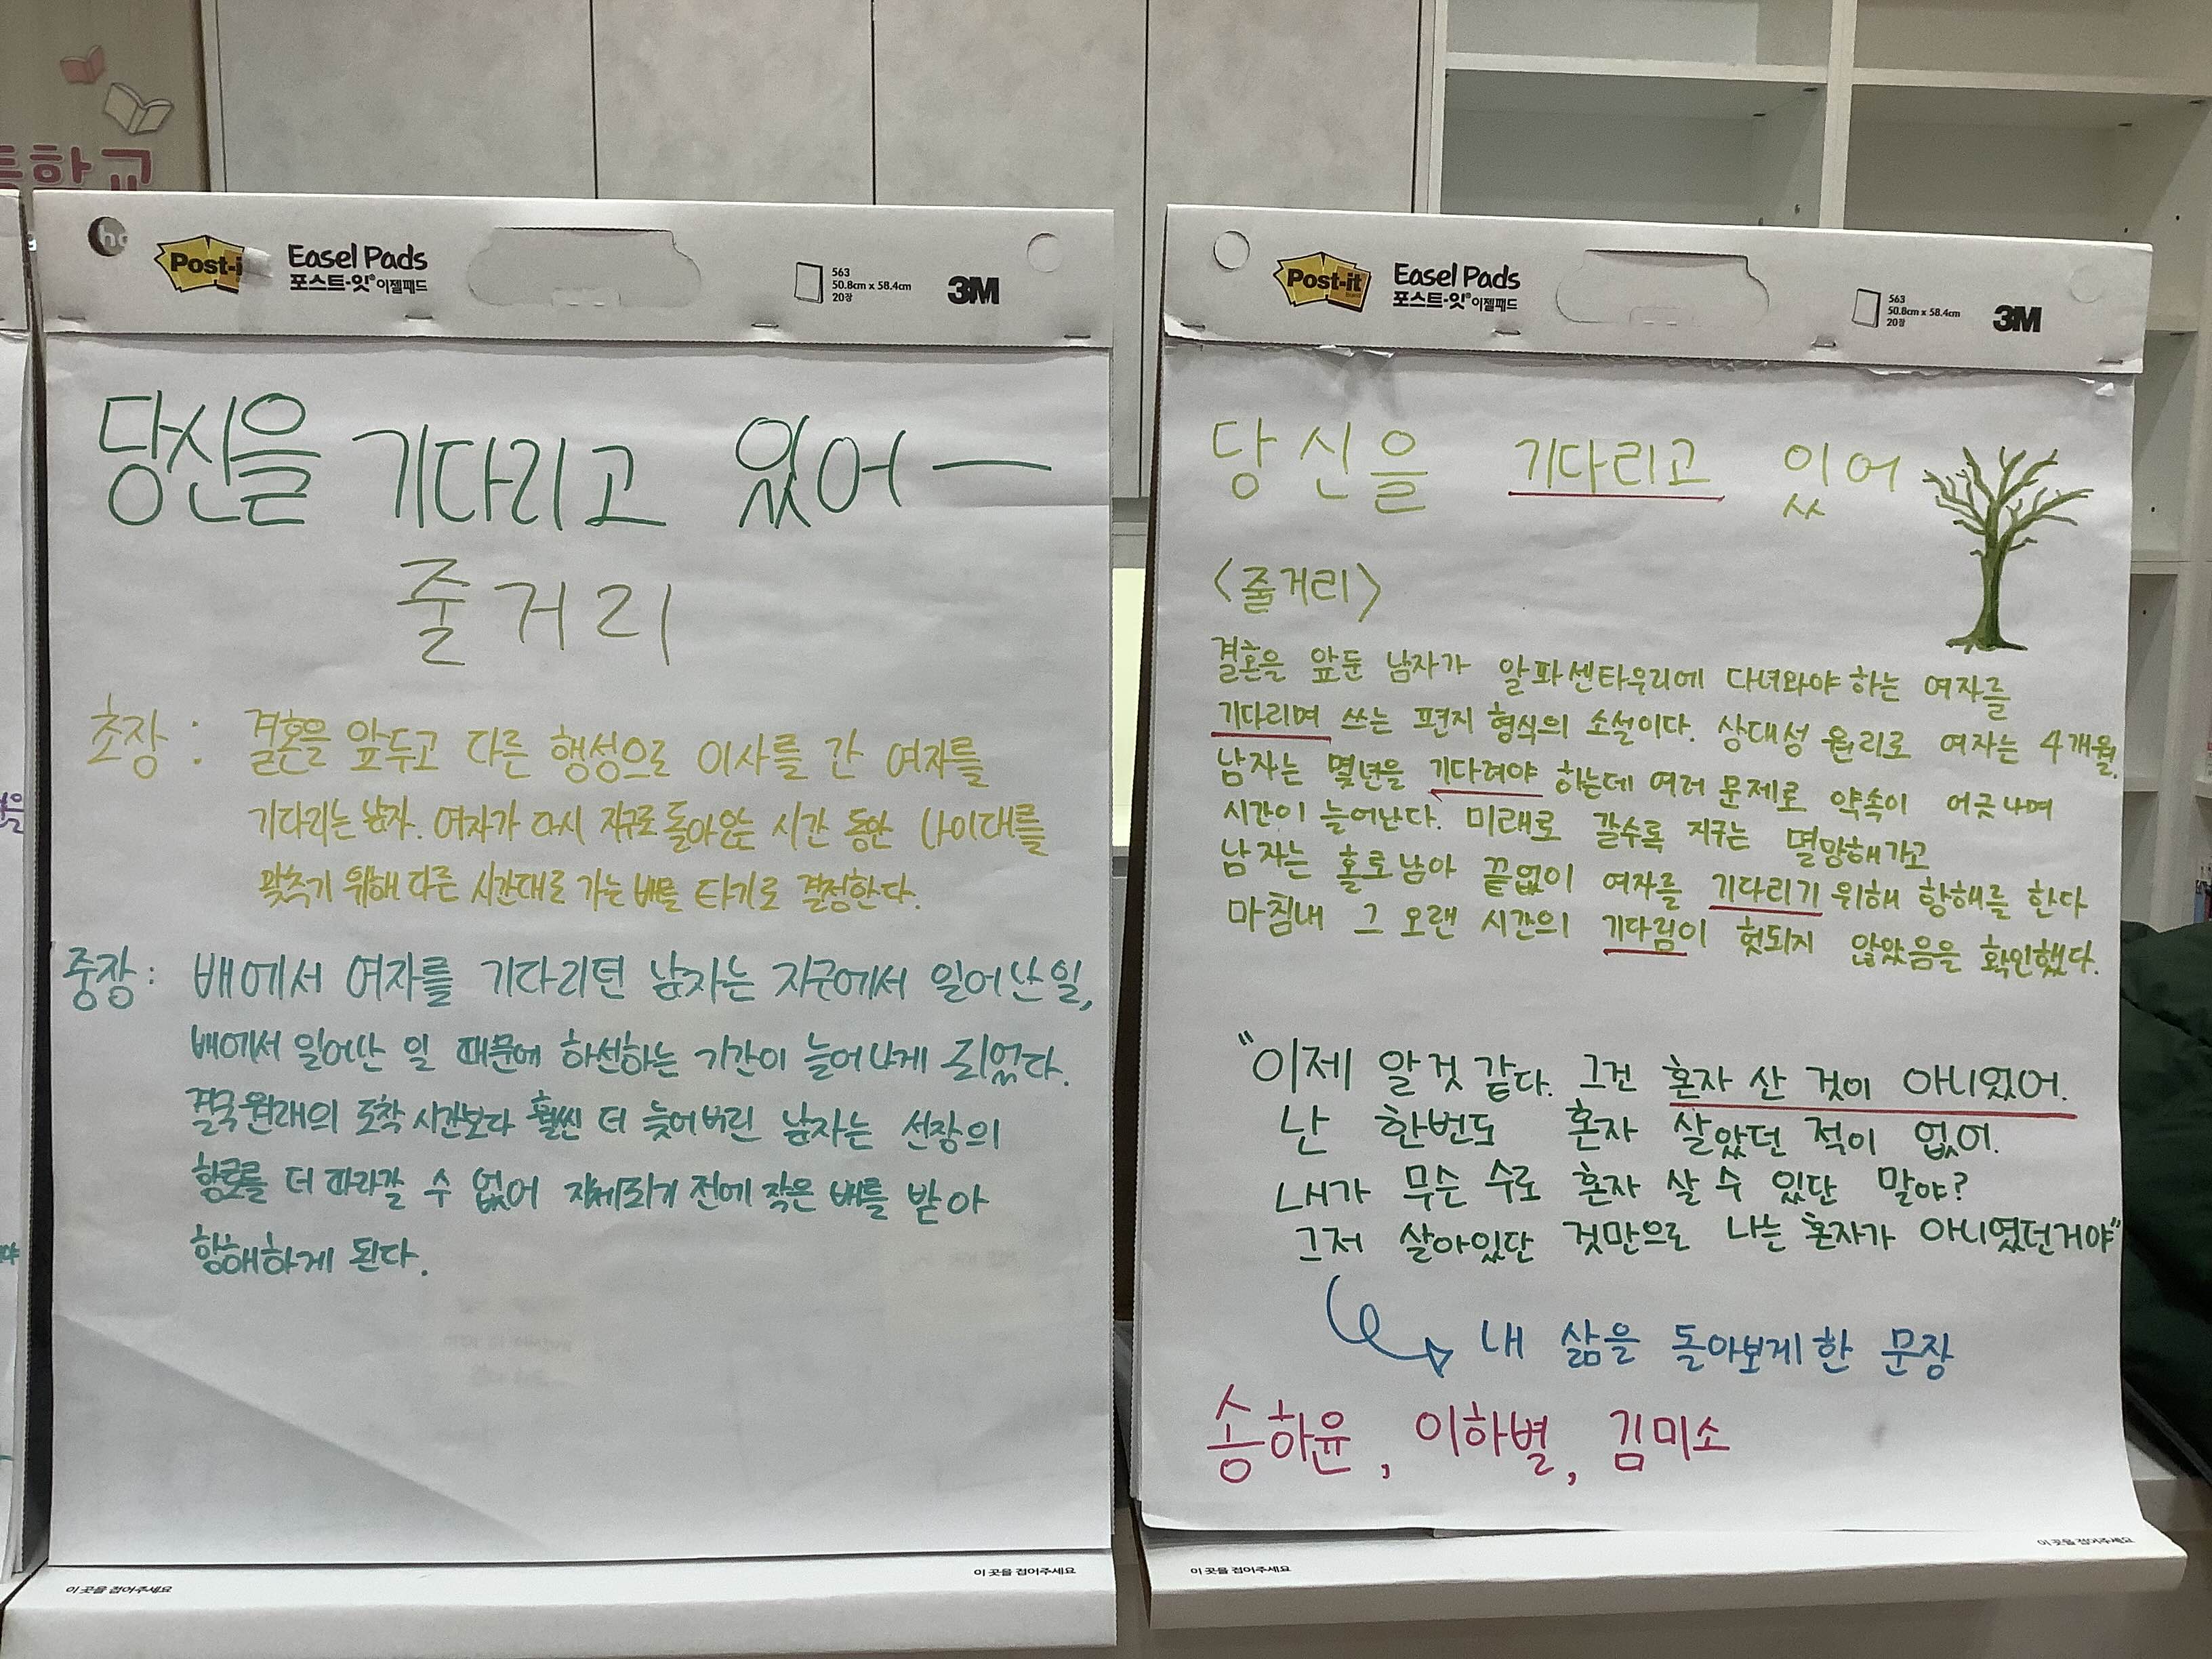 등학교
Post-it
Easel Pads
포스트-잇® 이젤패드
563
50.8cm x 58.4cm
20장
3M
당신을 기다리고 있어 —
줄거리
초장 : 결혼을 앞두고 다른 행성으로 이사를 간 여자를
기다리는 남자. 여자가 다시 지구로 돌아오는 시간 동안 나이대를
맞추기 위해 다른 시간대로 가는 배를 타기로 결정한다.
중장 : 배에서 여자를 기다리던 남자는 지구에서 일어난 일,
배에서 일어난 일 때문에 하선하는 기간이 늘어나게 되었다.
결국 원래의 도착 시간보다 훨씬 더 늦어버린 남자는 선장의
항로를 더 따라갈 수 없어 지체되기 전에 작은 배를 받아
항해하게 된다.
이 곳을 접어주세요
이 곳을 접어주세요
Post-it
Easel Pads
포스트-잇® 이젤패드
563
50.8cm x 58.4cm
20장
3M
당신을 기다리고 있어
<줄거리>
결혼을 앞둔 남자가 알파센타우리에 다녀와야 하는 여자를
기다리며 쓰는 편지 형식의 소설이다. 상대성 원리로 여자는 4개월,
남자는 몇년을 기다려야 하는데 여러 문제로 약속이 어긋나며
시간이 늘어난다. 미래로 갈수록 지구는 멸망해가고
남자는 홀로남아 끝없이 여자를 기다리기 위해 항해를 한다
마침내 그 오랜 시간의 기다림이 헛되지 않았음을 확인했다.
"이제 알것 같다. 그건 혼자 산 것이 아니었어.
난 한번도 혼자 살았던 적이 없어.
내가 무슨 수로 혼자 살 수 있단 말야?
그저 살아있단 것만으로 나는 혼자가 아니였던거야"
내 삶을 돌아보게 한 문장
송하윤, 이하별, 김미소
이 곳을 접어주세요
이 곳을 접어주세요